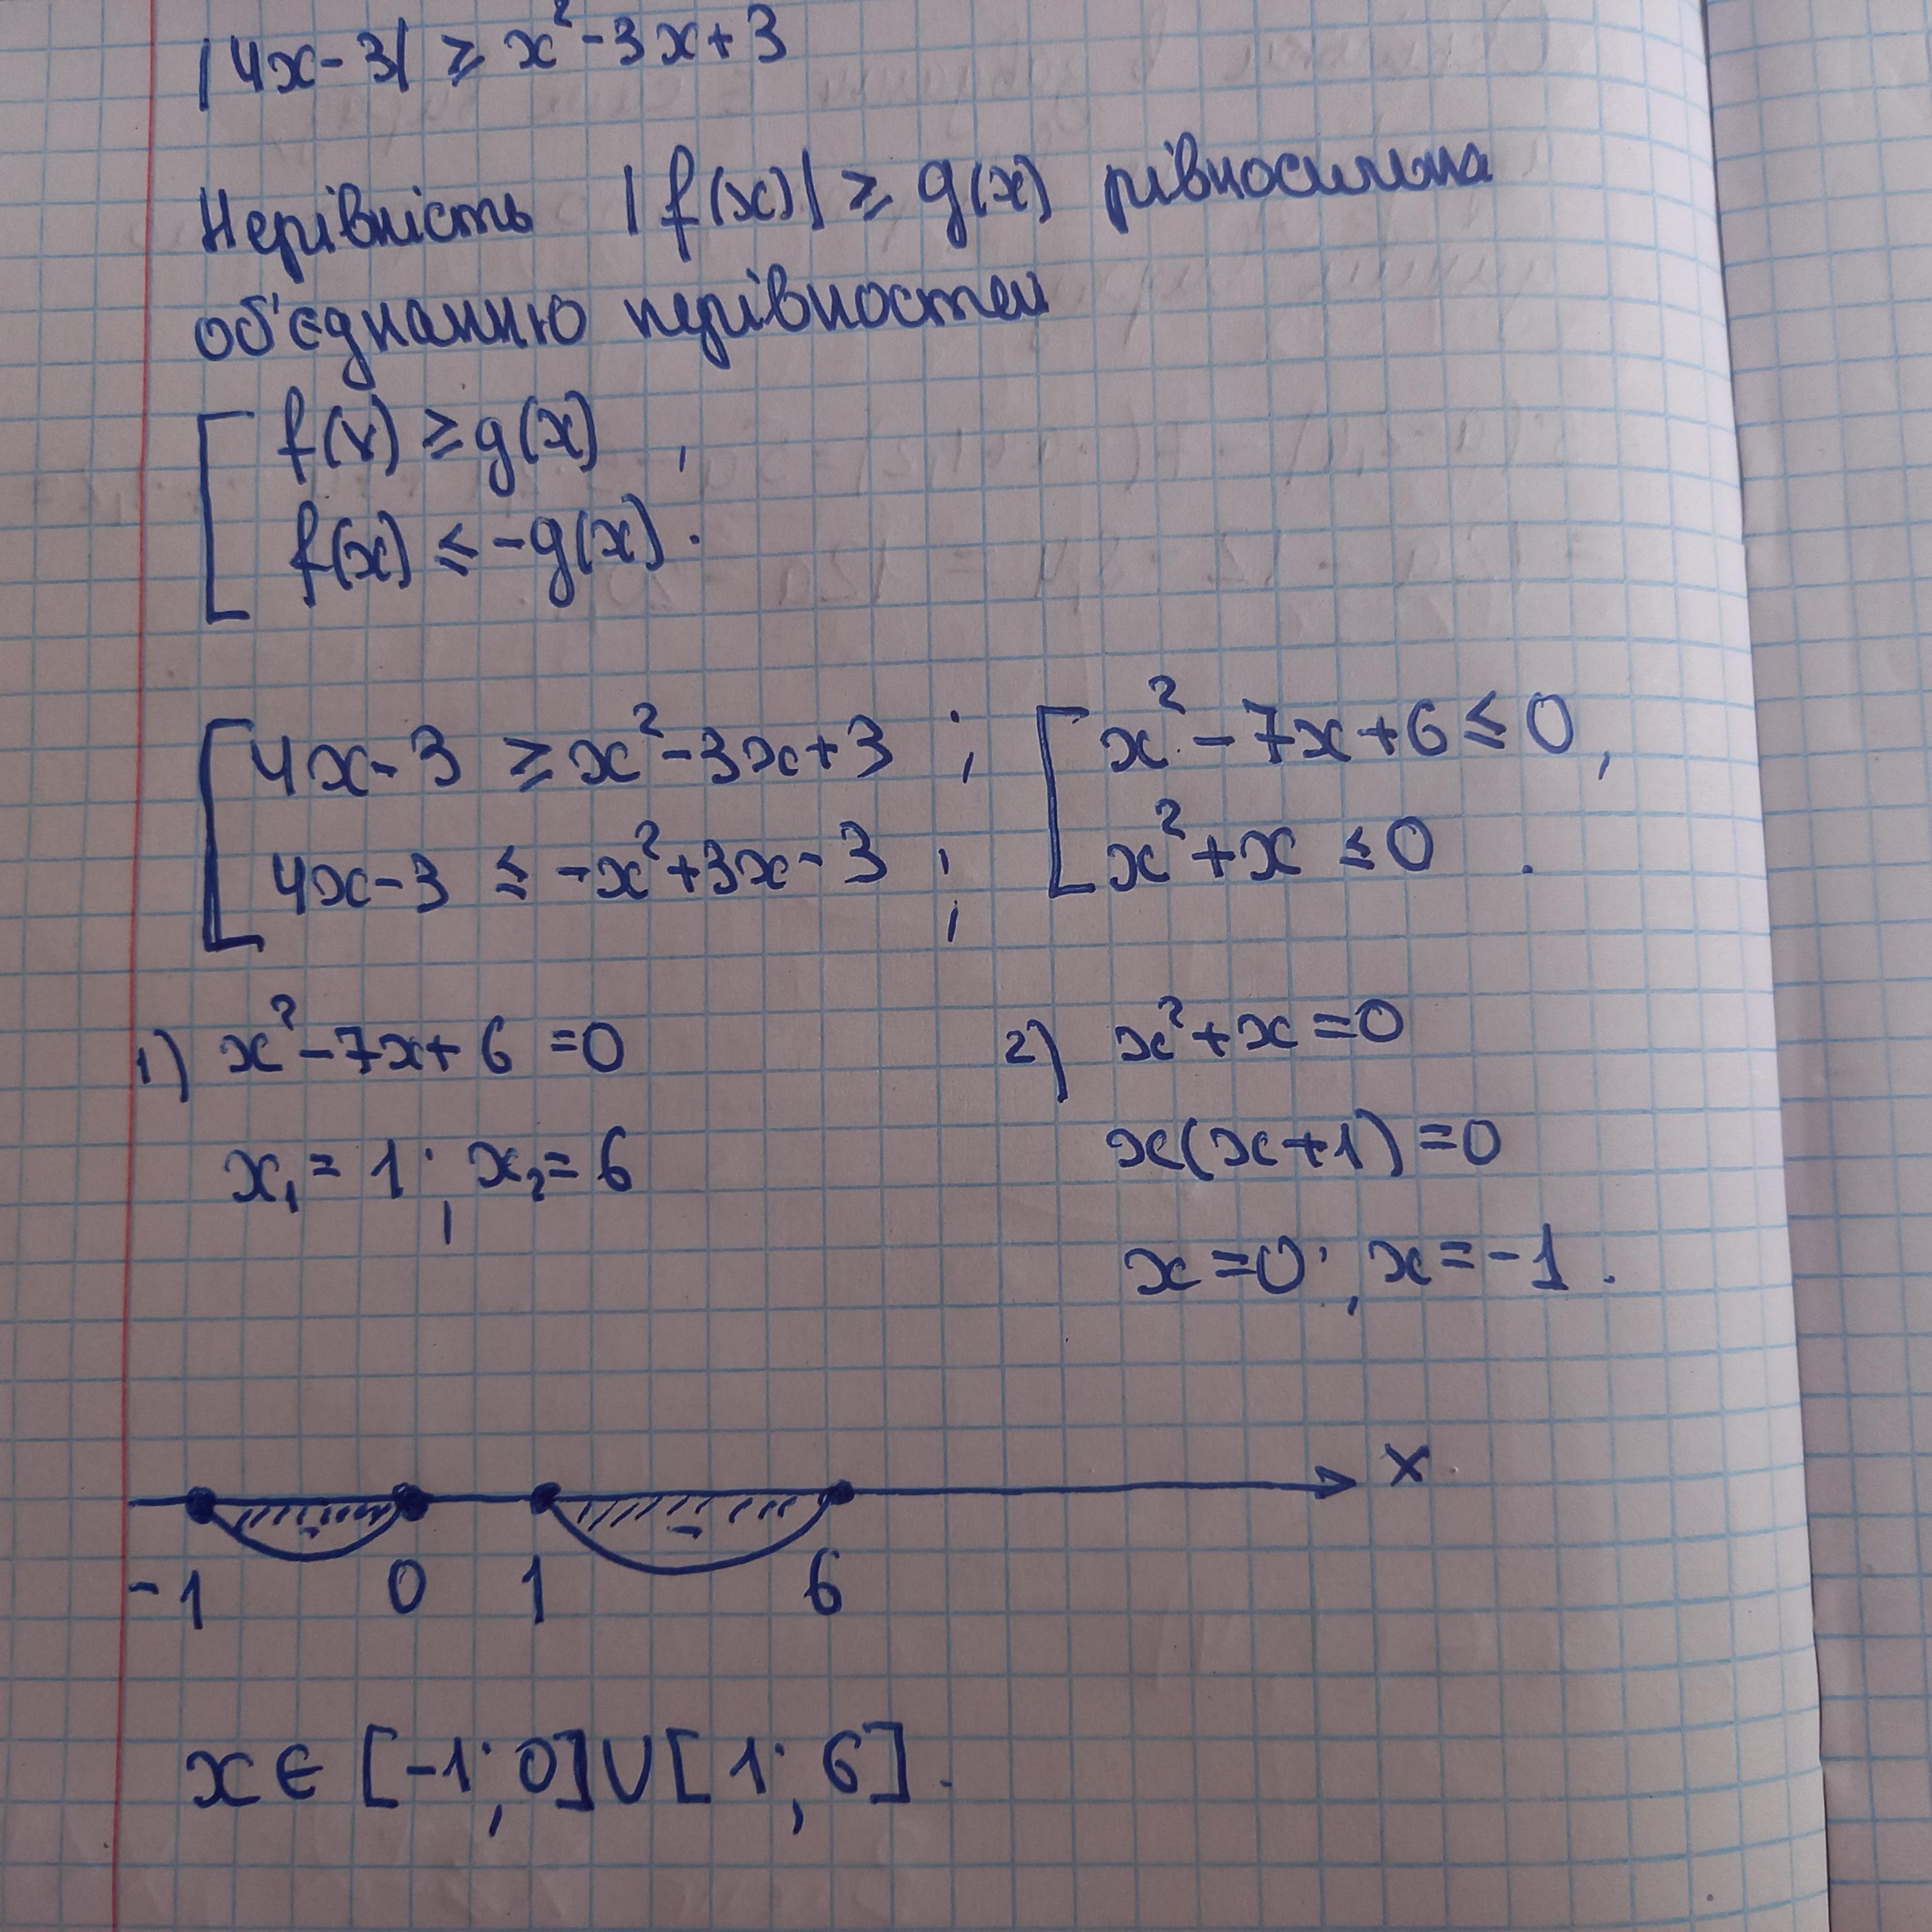 |4x-3| ≥ x²-3x+3
Нерівність |f(x)| ≥ g(x) рівносильна
об'єднанню нерівностей
[ f(x) ≥ g(x) ,
f(x) ≤ -g(x).
[ 4x-3 ≥ x²-3x+3 ; [ x²-7x+6 ≤ 0,
4x-3 ≤ -x²+3x-3 ; x²+x ≤ 0 .
1) x²-7x+6 =0 2) x²+x=0
x₁ = 1 ; x₂=6 x(x+1)=0
x=0 ; x=-1 .
x
- -
-1 0 1 6
x ∈ [-1; 0]∪[1; 6].